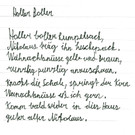 Holler Boller
Holler boller Rumpelsack,
Nikolaus trug ihn huckepack,
Weihnachtsnüsse gelb und braun,
runzlig punzlig anzuschaun.
Knackt die Schale, springt der Kern,
Weihnachtsnüsse ess ich gern.
Komm bald wieder in dies Haus,
guter alter Nikolaus.